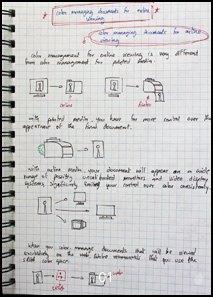 color managing documents for online
viewing
color managing documents for online
viewing
color management for online viewing is very different
from color management for printed media
online
printer
with printed media, you have far more control over the
appearance of the final document.
with online media, your document will appear on a wide
range of possibly uncalibrated monitors and video display
systems, significantly limiting your control over color consistency
when you color manage documents that will be viewed
exclusively on the web, Adobe recommends that you use the
sRGB color space.